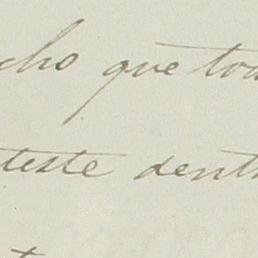 cho que tod
teste dent